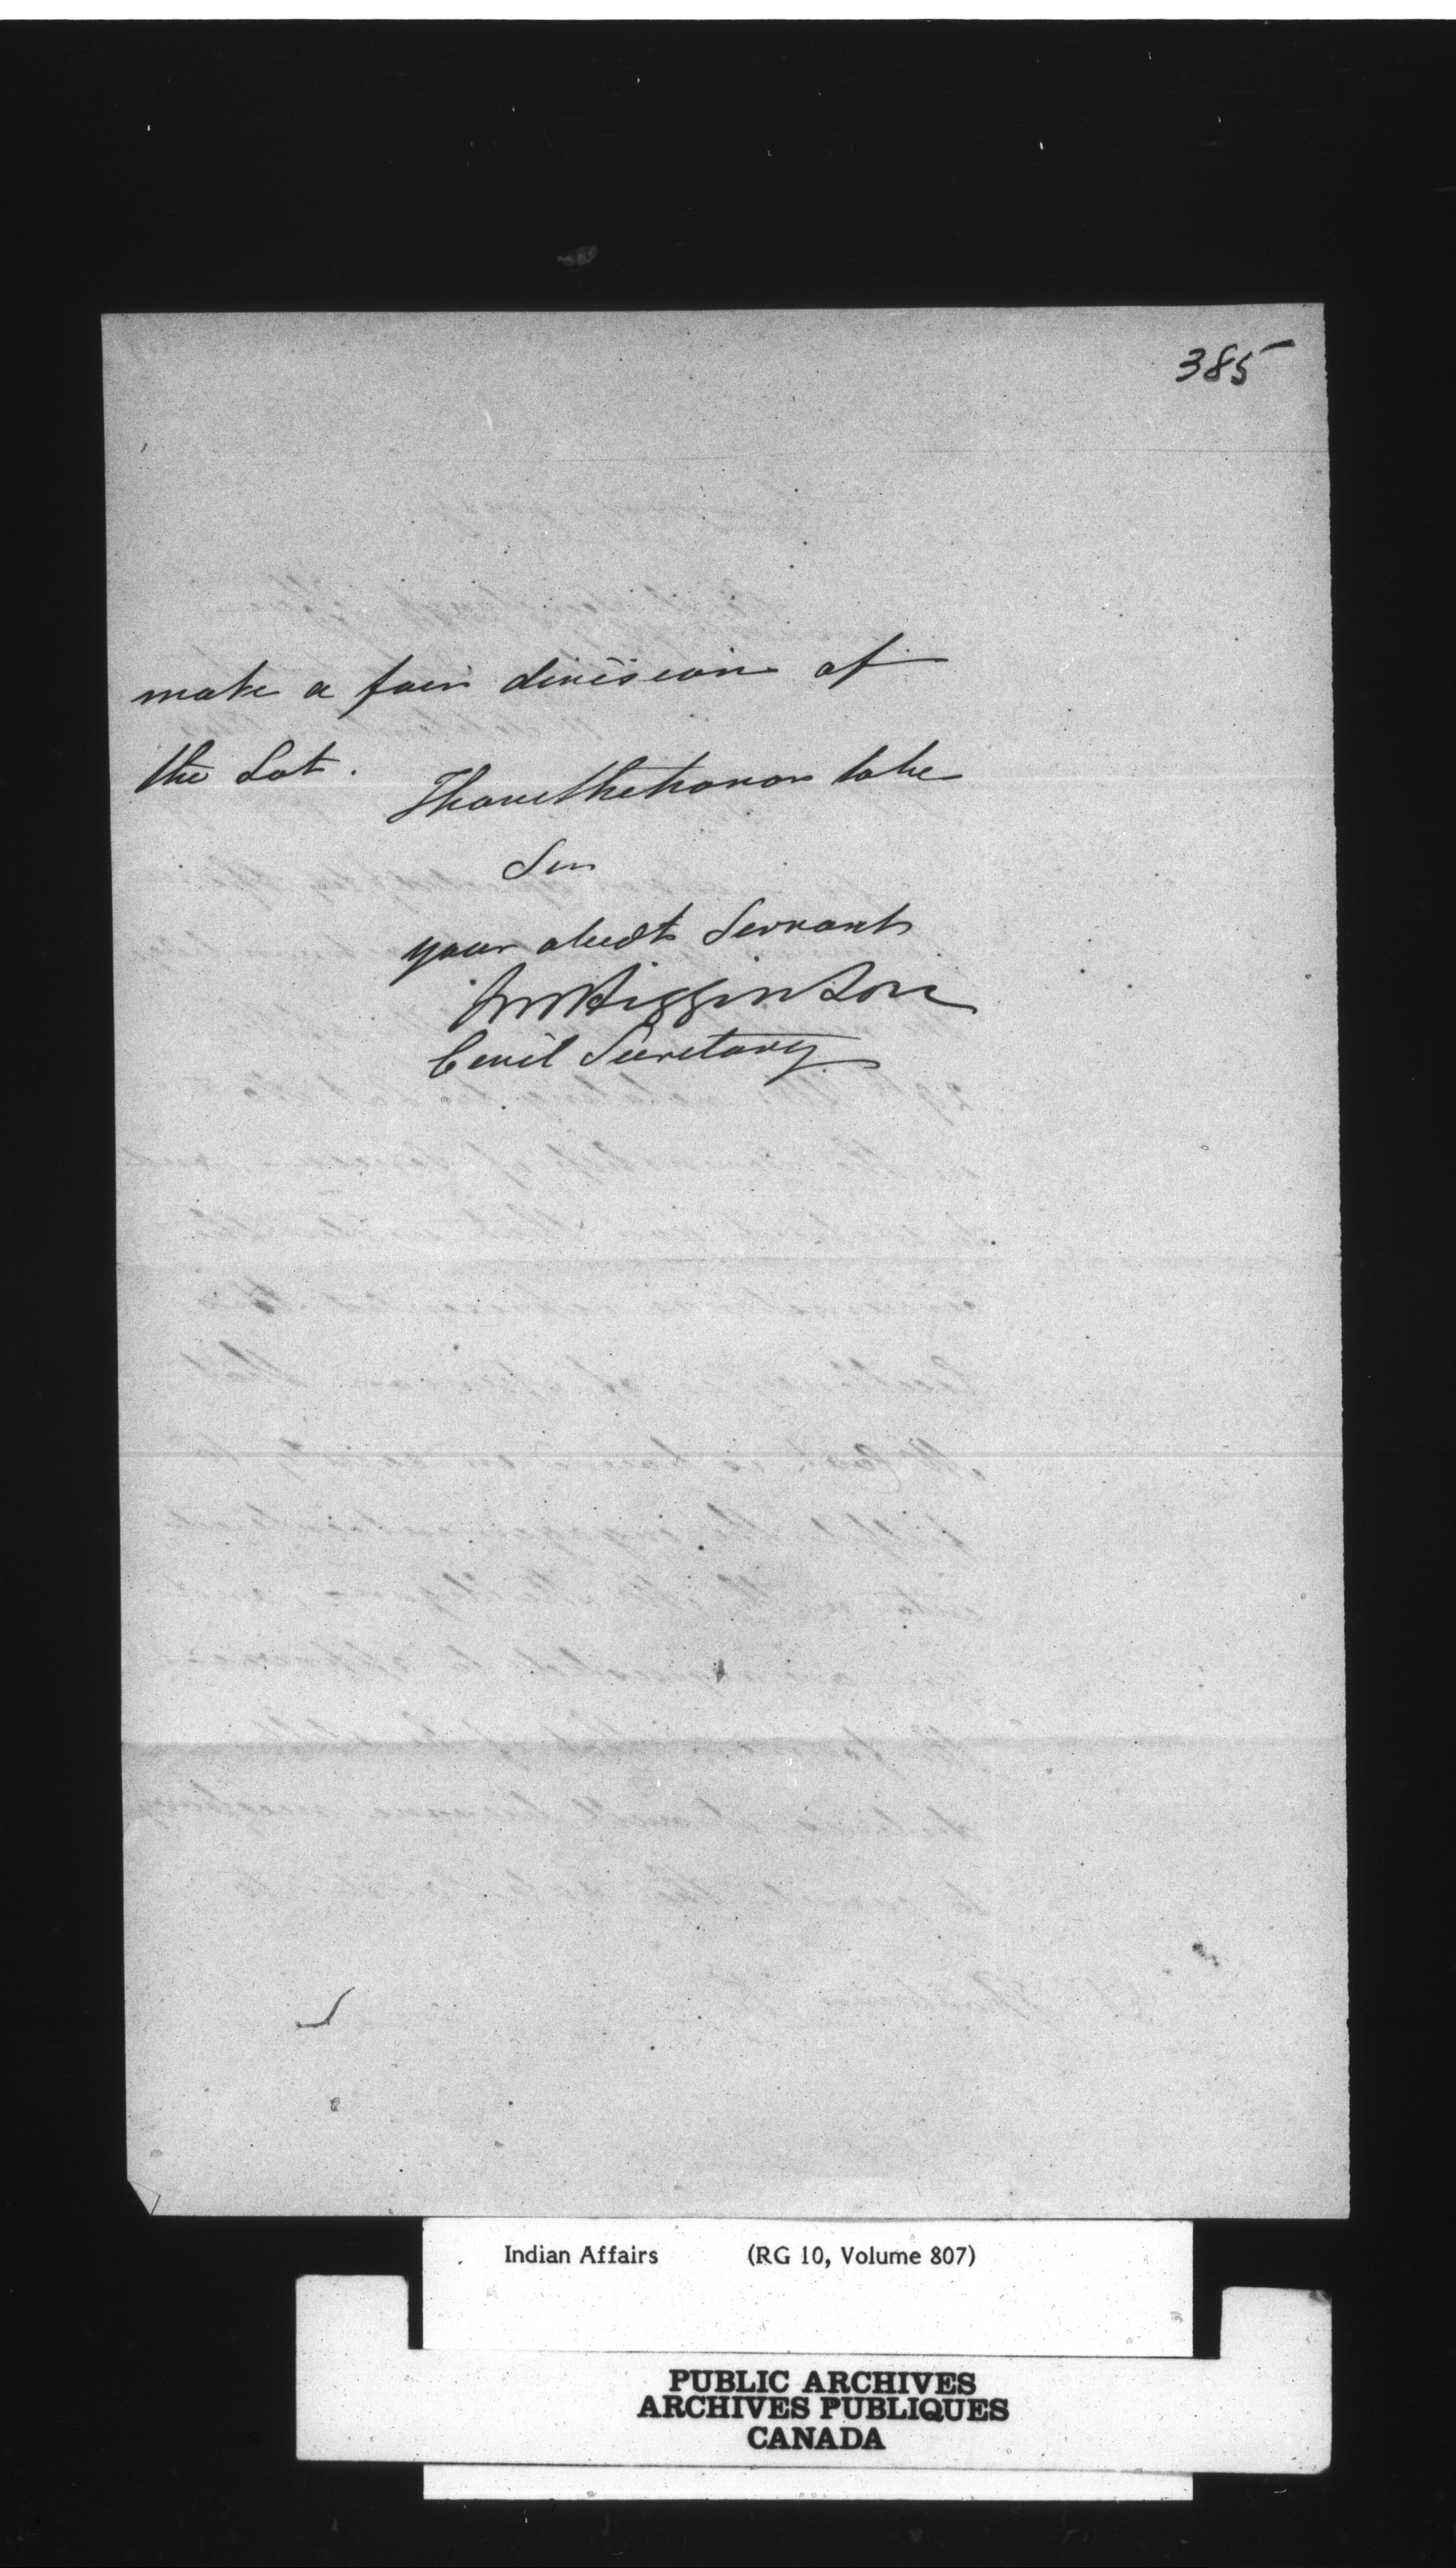 385
make a fair division of
the Lot.
I have the honor to be
Sir
your obedt Servant
JMHigginson
Civil Secretary
Indian Affairs (RG 10, Volume 807)
PUBLIC ARCHIVES
ARCHIVES PUBLIQUES
CANADA